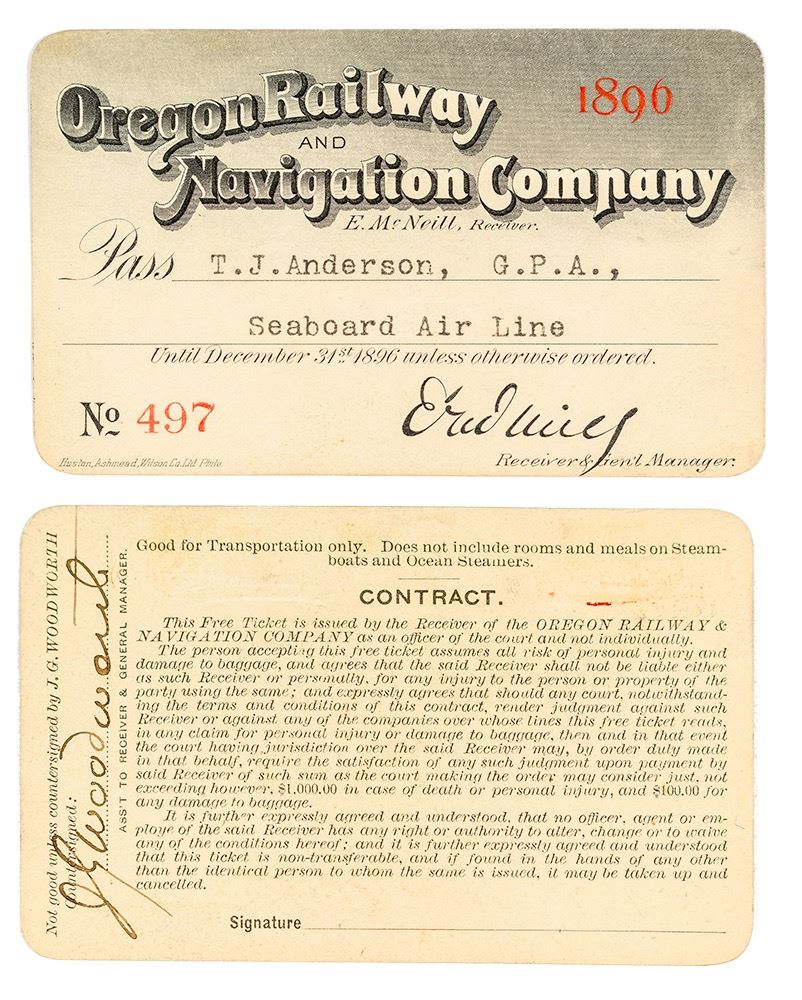 Oregon Railway
1896
AND
Navigation Company
E. McNeill, Receiver.
Pass T.J.Anderson, G.P.A.,
Seaboard Air Line
Until December 31st 1896 unless otherwise ordered.
No 497
Receiver & Gen'l Manager.
Huston, Ashmead, Wilson Co. Ltd Phila.
Not good unless countersigned by J. G. WOODWORTH
Countersigned:
J G Woodworth
ASS'T TO RECEIVER & GENERAL MANAGER.
Good for Transportation only. Does not include rooms and meals on Steam-
boats and Ocean Steamers.
CONTRACT.
This Free Ticket is issued by the Receiver of the OREGON RAILWAY &
NAVIGATION COMPANY as an officer of the court and not individually.
The person accepting this free ticket assumes all risk of personal injury and
damage to baggage, and agrees that the said Receiver shall not be liable either
as such Receiver or personally, for any injury to the person or property of the
party using the same; and expressly agrees that should any court, notwithstand-
ing the terms and conditions of this contract, render judgment against such
Receiver or against any of the companies over whose lines this free ticket reads,
in any claim for personal injury or damage to baggage, then and in that event
the court having jurisdiction over the said Receiver may, by order duly made
in that behalf, require the satisfaction of any such judgment upon payment by
said Receiver of such sum as the court making the order may consider just, not
exceeding however, $1,000.00 in case of death or personal injury, and $100.00 for
any damage to baggage.
It is further expressly agreed and understood, that no officer, agent or em-
ploye of the said Receiver has any right or authority to alter, change or to waive
any of the conditions hereof; and it is further expressly agreed and understood
that this ticket is non-transferable, and if found in the hands of any other
than the identical person to whom the same is issued, it may be taken up and
cancelled.
Signature